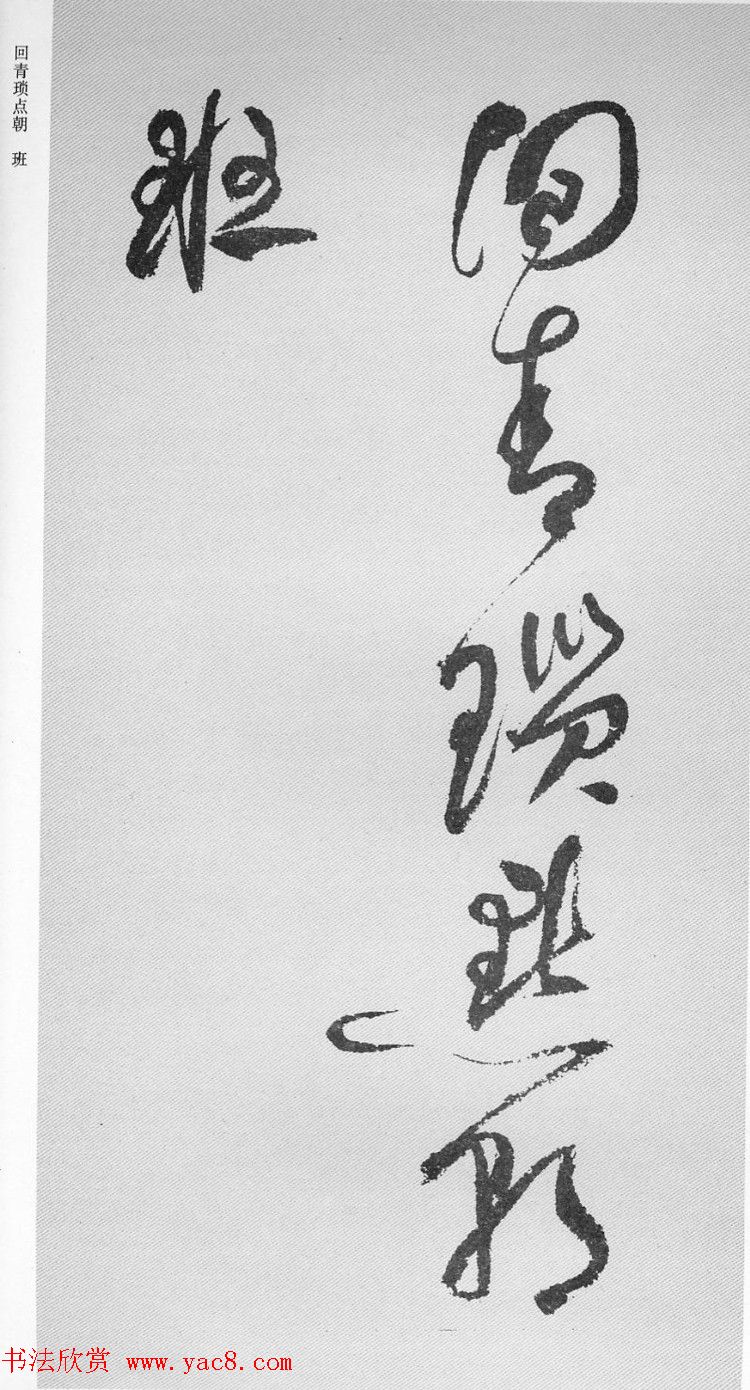 回青瑣點朝
班
回青琐点朝 班
书法欣赏 www.yac8.com